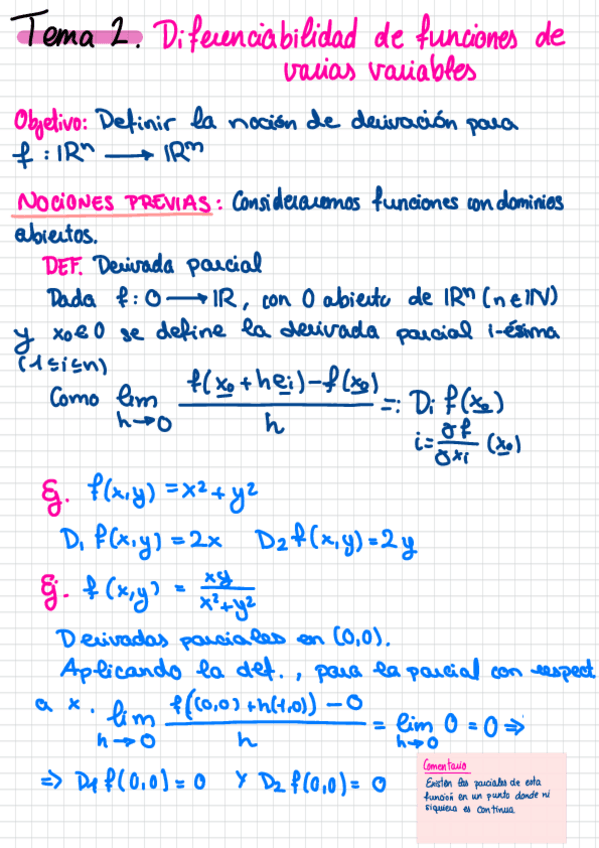 Tema 2. Diferenciabilidad de funciones de
varias variables
Objetivo: Definir la noción de derivación para
f : ℝⁿ ⟶ ℝᵐ
NOCIONES PREVIAS: Consideraremos funciones con dominios
abiertos.
DEF. Derivada parcial
Dada f: O ⟶ ℝ, con O abierto de ℝⁿ (n ∈ ℕ)
y x₀ ∈ O se define la derivada parcial i-ésima
(1 ≤ i ≤ n)
Como lim h→0 (f(x₀ + h eᵢ) − f(x₀)) / h =: Dᵢ f(x₀)
i = ∂f/∂xᵢ (x₀)
Ej. f(x,y) = x² + y²
D₁ f(x,y) = 2x D₂ f(x,y) = 2y
Ej. f(x,y) = xy / (x² + y²)
Derivadas parciales en (0,0).
Aplicando la def., para la parcial con respect
a x. lim h→0 (f((0,0) + h(1,0)) − 0) / h = lim h→0 0 = 0 ⇒
⇒ D₁ f(0,0) = 0 Y D₂ f(0,0) = 0
Comentario
Existen las parciales de esta
función en un punto donde ni
siquiera es continua.